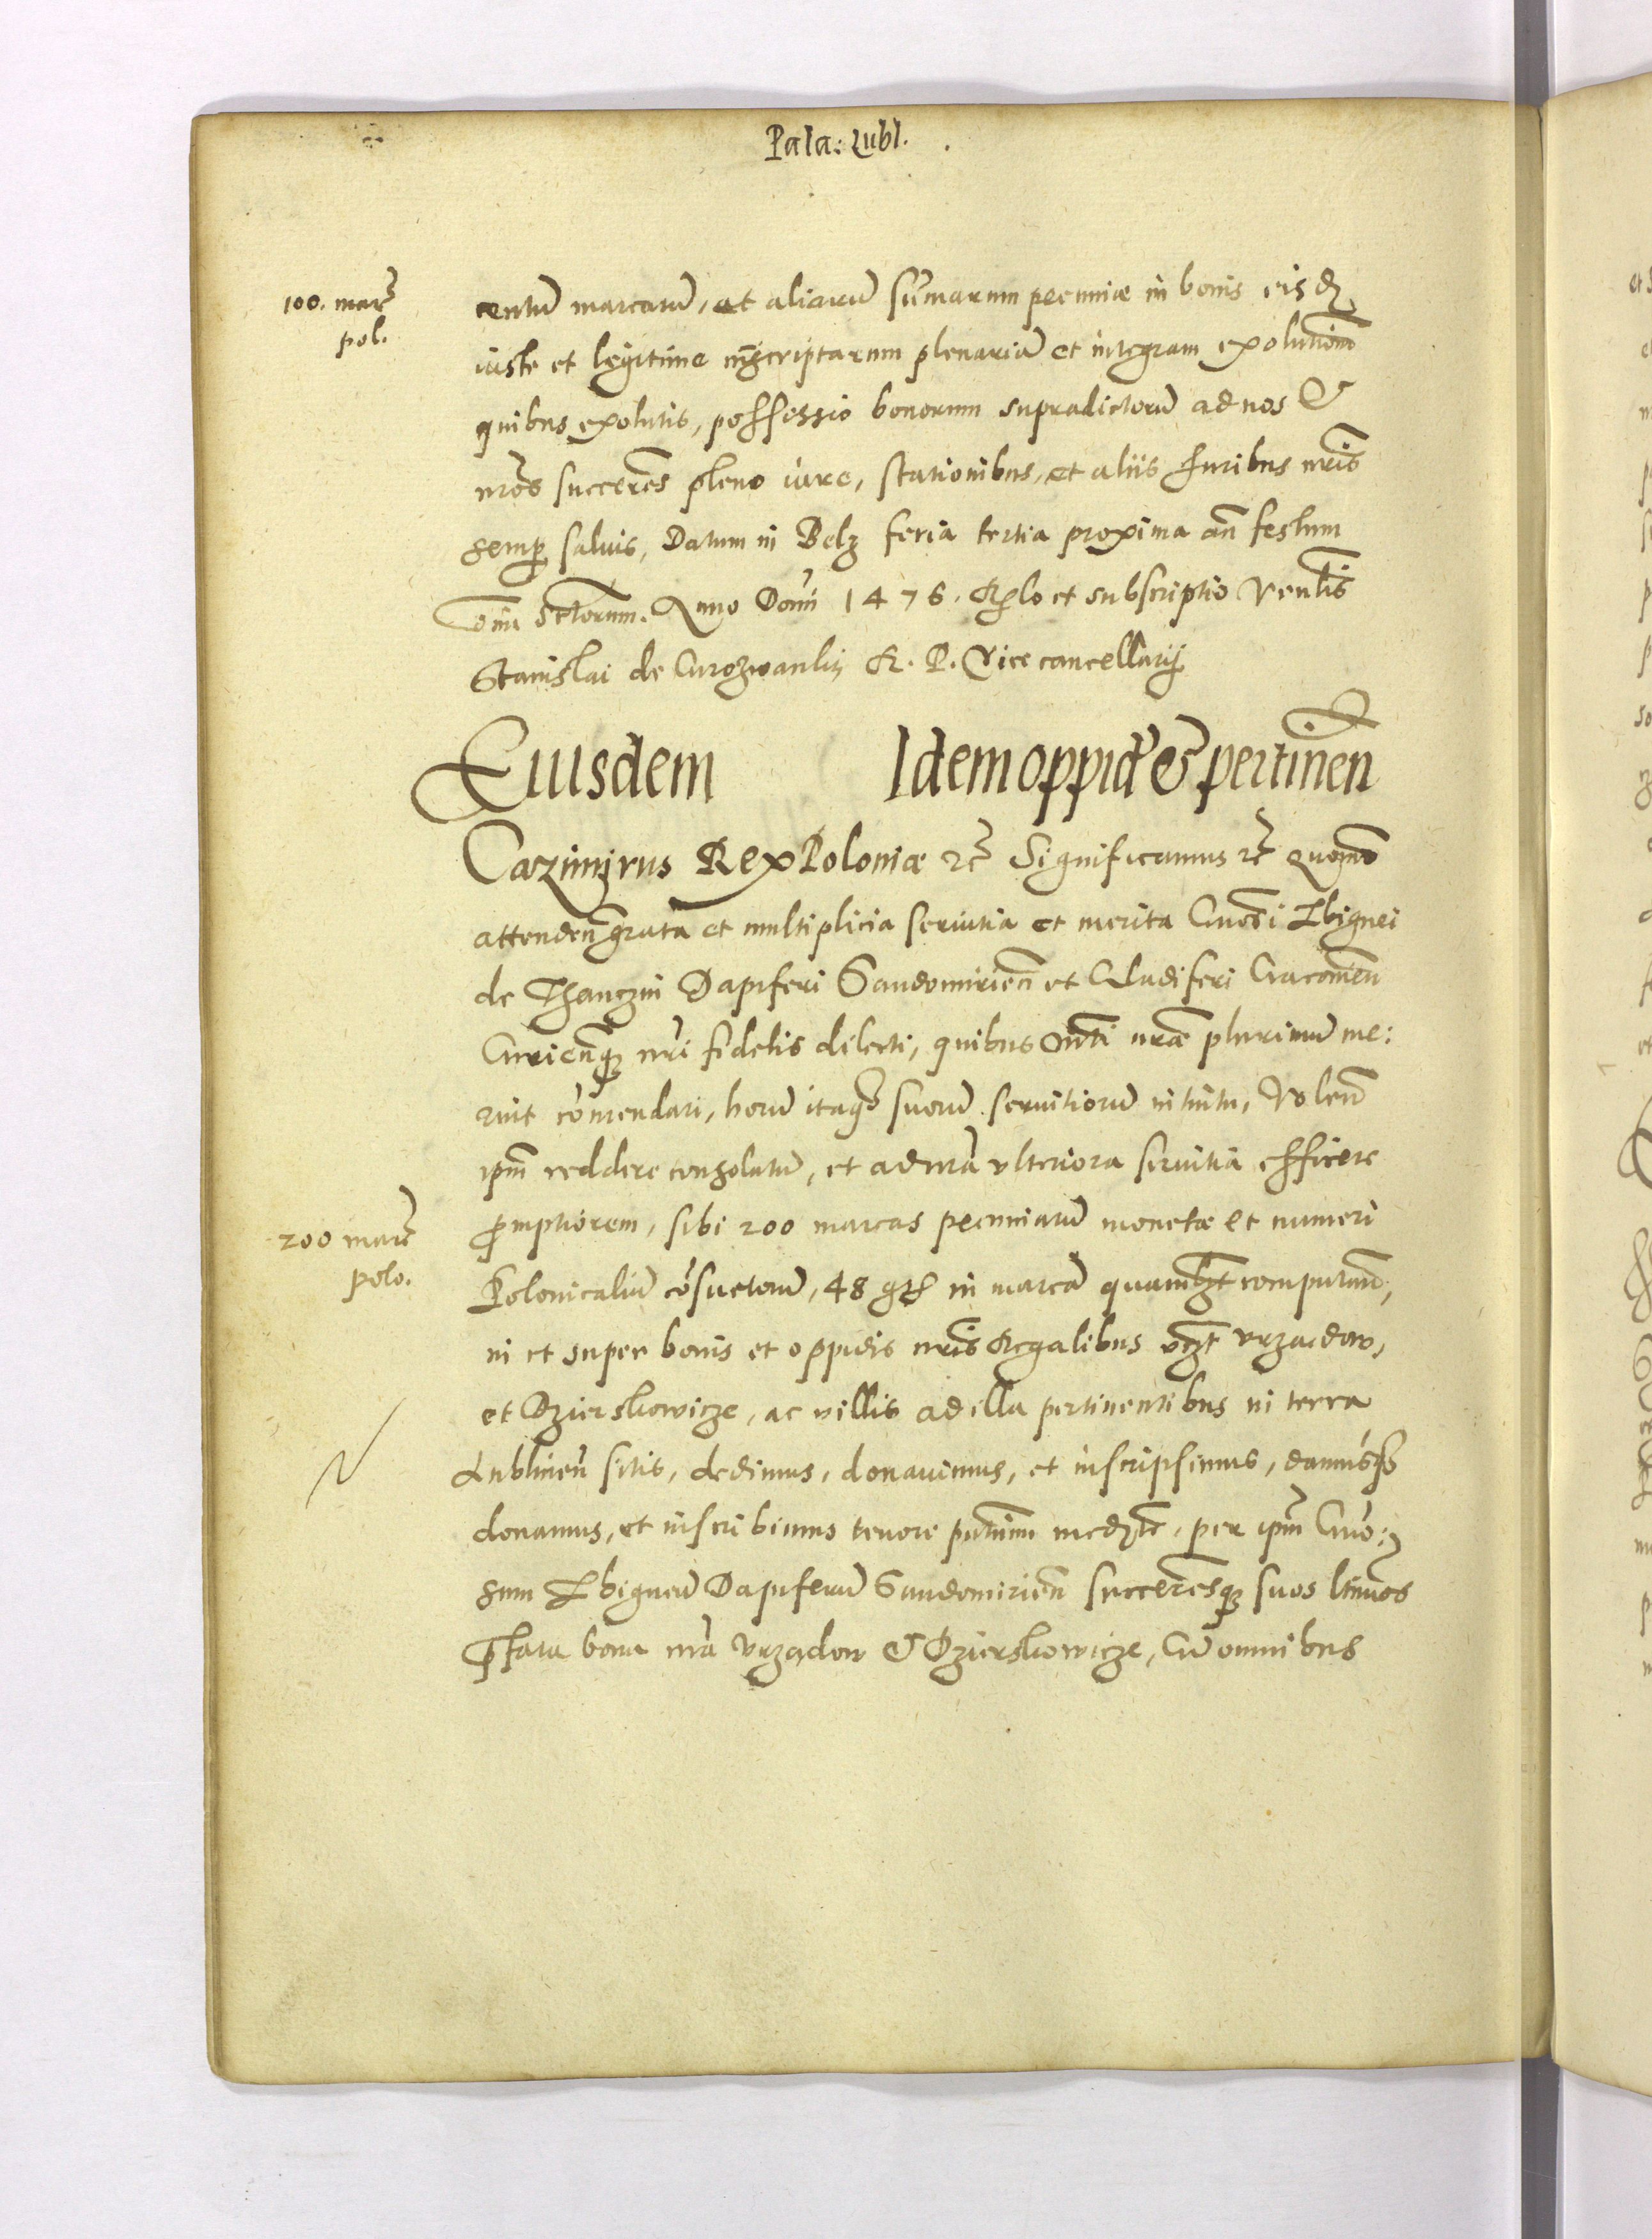 Pala: Lubl.
100. marc̃
pol.
centũ marcarũ, et aliarũ sũmarum pecuniæ in bonis eisdẽ
iuste et legitime inscriptarum plenariã et integram exolutionẽ
quibus exolutis, possessio bonorum supradictorũ ad nos &
nr̃os successores pleno iure, stationibus, et aliis Iuribus nr̃is
semp̱ saluis, Datum in Belz feria tertia proxima añ festum
Om̃i Sctorum. Anno Dom̃i 1476. R̃lo et subscriptio Venlis
Stanislai de Curozwanky R. P. Vicecancellarij
Eiusdem Idem oppid̃ & pertinen̄
Cazimirus Rex Poloniæ etc̃ Significamus etc̃ quom̃o
attenden̄ grata et multiplicia seruitia et merita Gñosi Sbignei
de Thanczin Dapiferi Sandomirien̄ et Gladiferi Cracouien̄
Curien̄q; nr̃i fidelis dilecti, quibus Mt̃i nr̃æ plurimũ me:
ruit cõmendari, horũ itaq; suorũ seruitiorũ intuitu, Volen̄
ipm̃ reddere consolatũ, et ad nr̃a vlteriora seruitia efficere
p̃mptiorem, sibi 200 marcas pecuniarũ monetæ et numeri
200 marc̃
polo.
Polonicaliũ cõsuetorũ, 48 gr̃ in marcã quamlẓt computan̄,
in et super bonis et oppidis nr̃is Regalibus vẓt Vrzædow,
et Dzierskowicze, ac villis ad illa pertinentibus in terra
Lublinen̄ sitis, dedimus, donauimus, et inscripsimus, damusq;
donamus, et inscribimus tenore pñtium med̃te, per ipm̃ Gño:
sum Sbigneũ Dapiferũ Sandomirien̄ successoresq; suos ltimos
p̃fata bona nr̃a Vrzędow & Dzierskowicze, Cũ omnibus